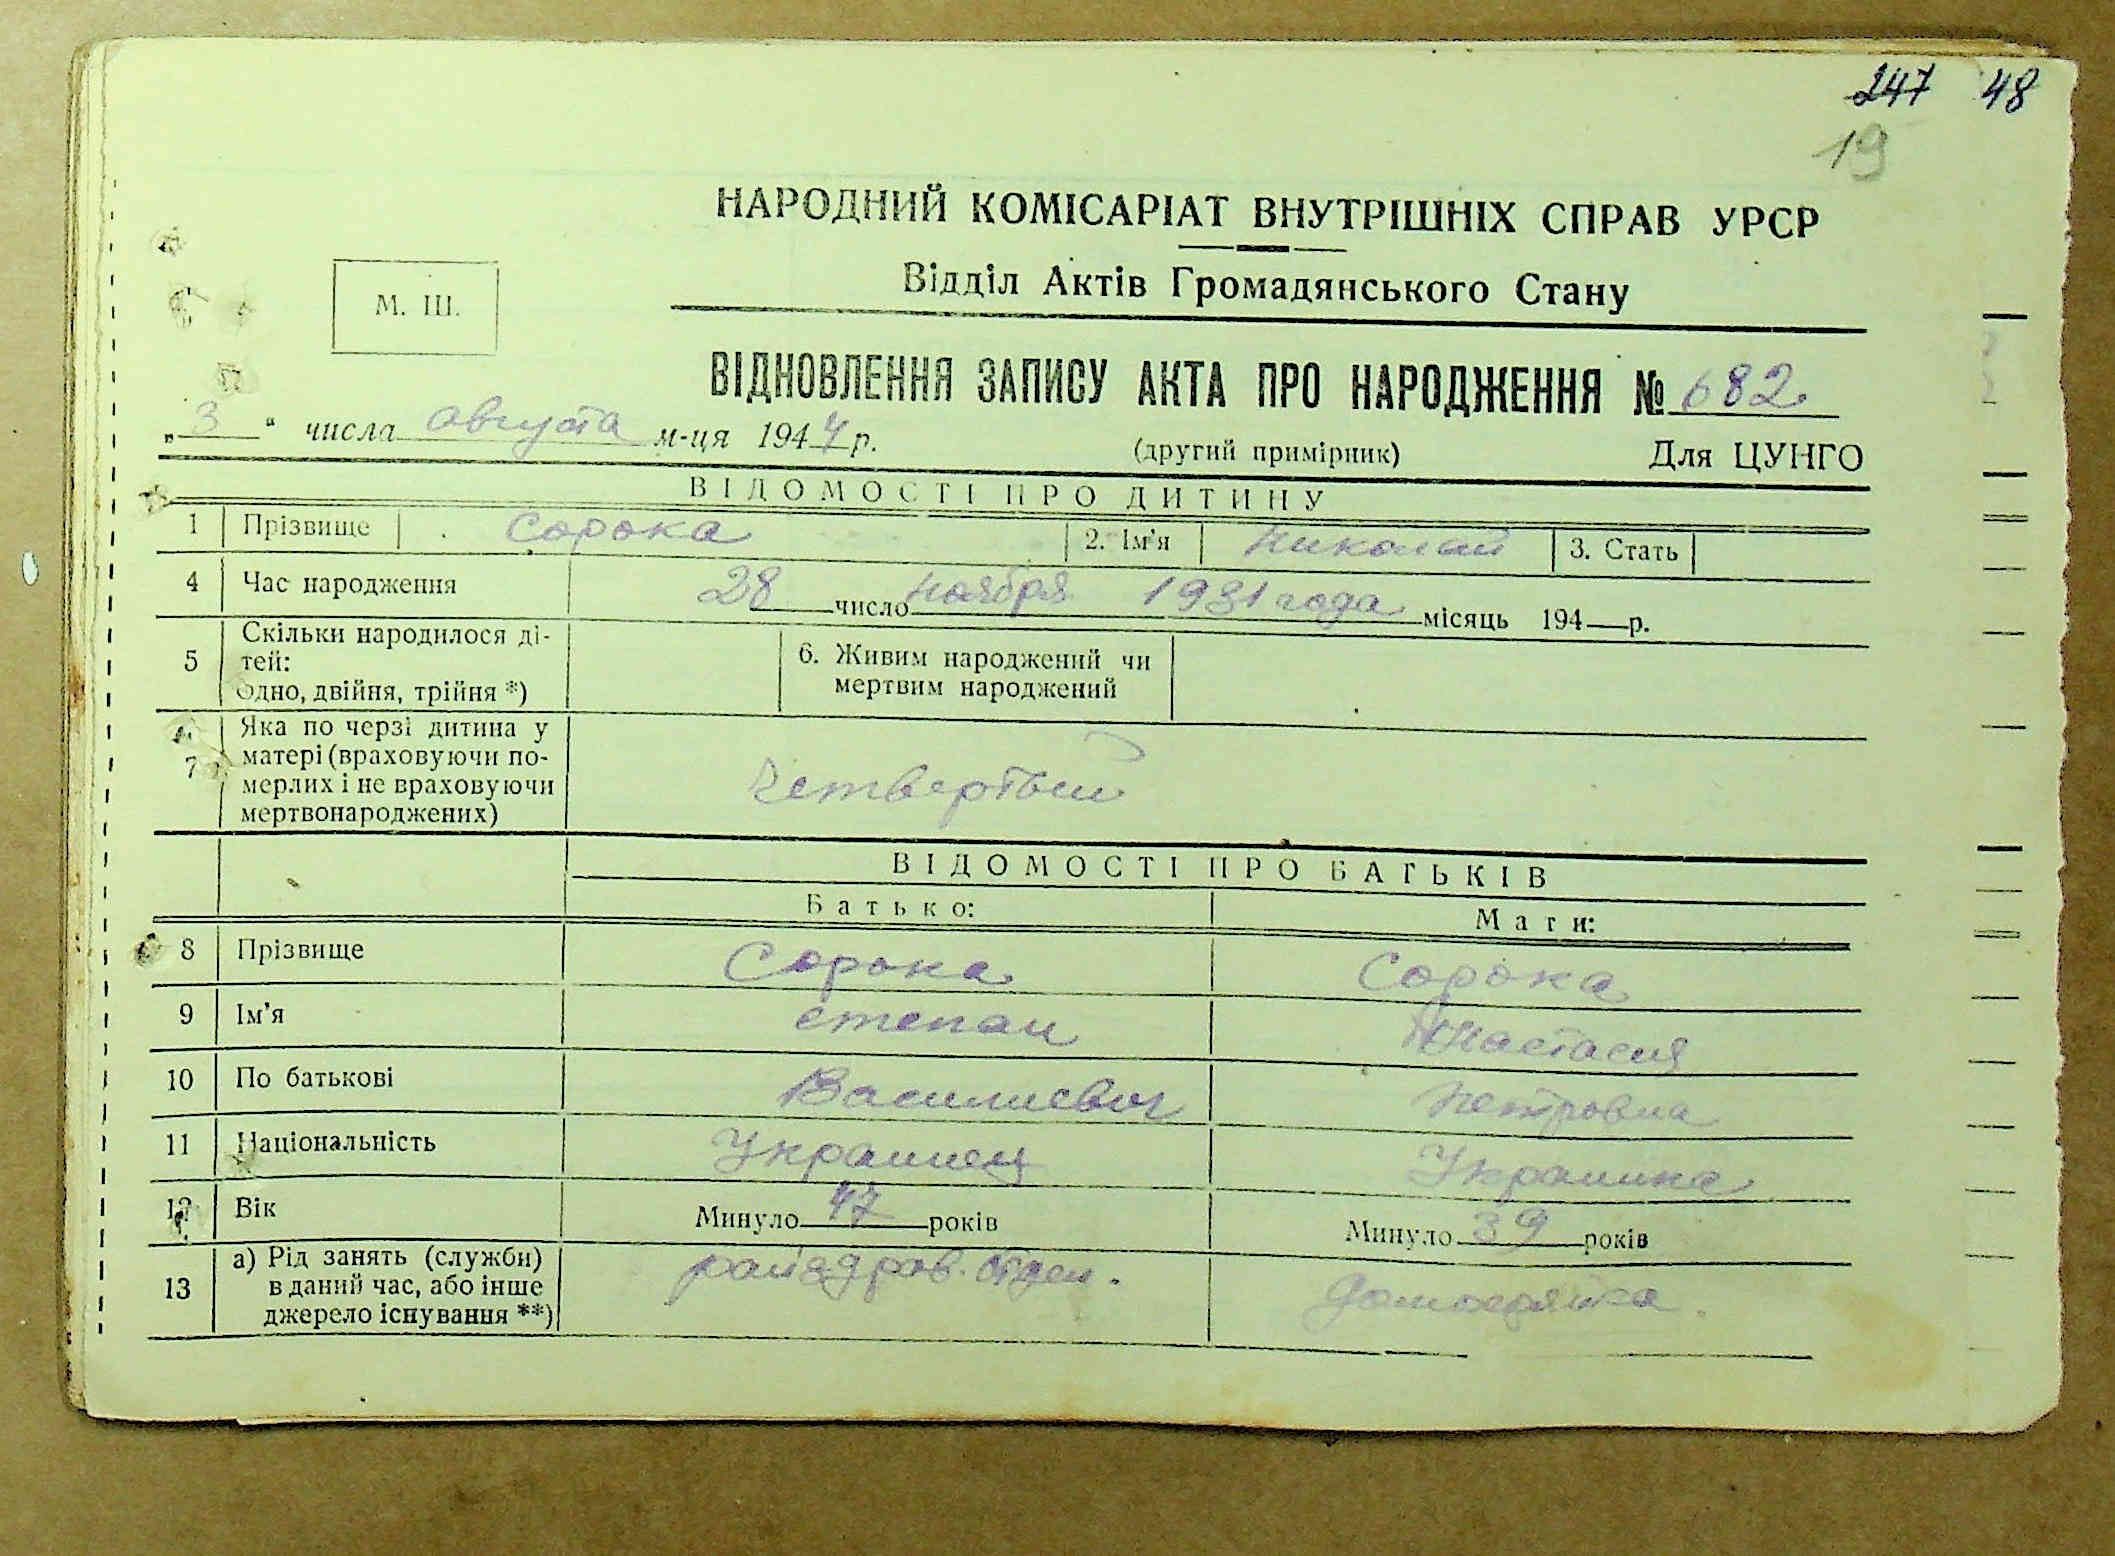 247 48
19
НАРОДНИЙ КОМІСАРІАТ ВНУТРІШНІХ СПРАВ УРСР
Відділ Актів Громадянського Стану
М. Ш.
ВІДНОВЛЕННЯ ЗАПИСУ АКТА ПРО НАРОДЖЕННЯ № 682
„3“ числа августа м-ця 1944 р. (другий примірник) Для ЦУНГО
ВІДОМОСТІ ПРО ДИТИНУ
1 Прізвище Сорока 2. Ім'я Николай 3. Стать
4 Час народження 28 число ноября 1931 года місяць 194—р.
5 Скільки народилося ді-
тей:
одно, двійня, трійня *)
6. Живим народжений чи
мертвим народжений
7 Яка по черзі дитина у
матері (враховуючи по-
мерлих і не враховуючи
мертвонароджених)
Четвертый
ВІДОМОСТІ ПРО БАТЬКІВ
Батько: Мати:
8 Прізвище Сорока Сорока
9 Ім'я Степан Анастасия
10 По батькові Василиевич Петровна
11 Національність Украинец Украинка
12 Вік Минуло 47 років Минуло 39 років
13 а) Рід занять (служби)
в даний час, або інше
джерело існування **)
райздрав. отдел. домохозяйка.